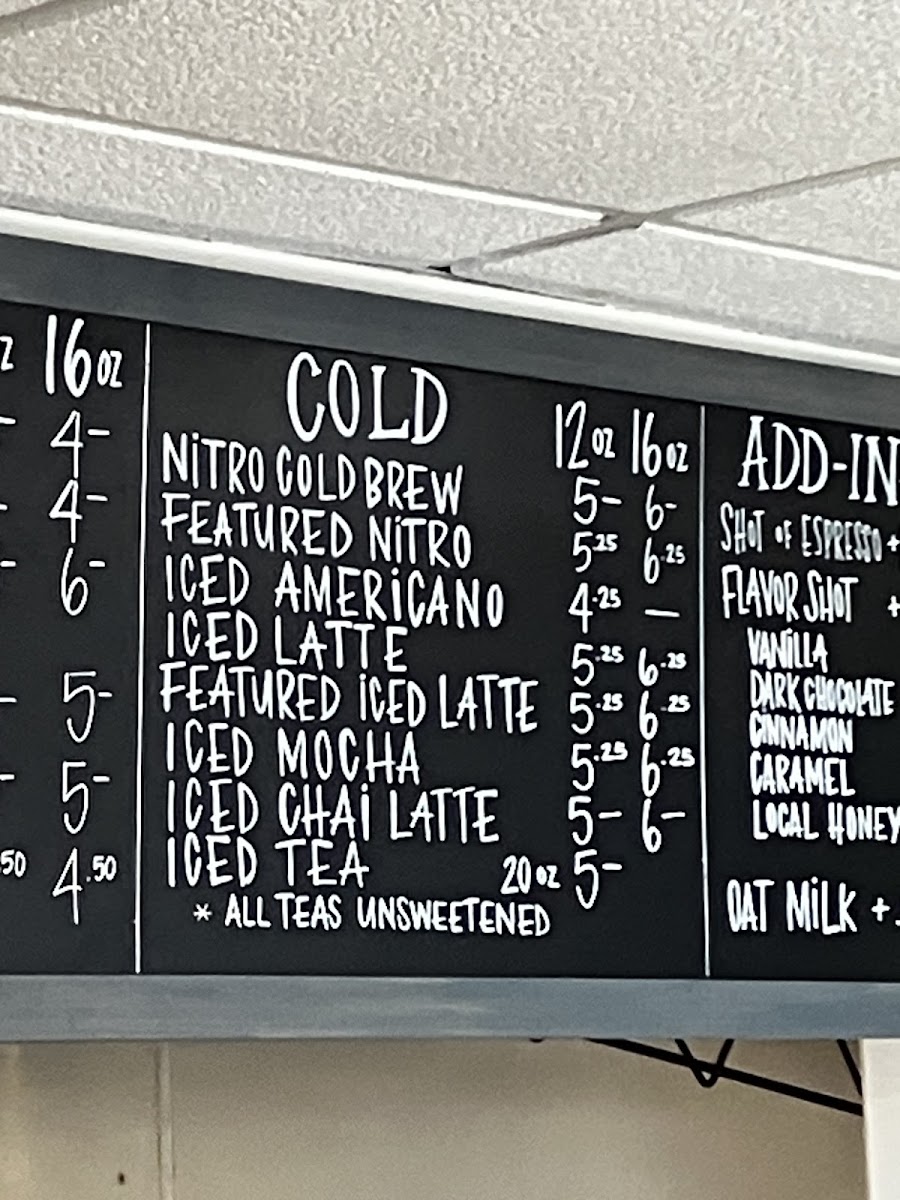 16oz
4-
4-
6-
5-
5-
.50 4.50
COLD
12oz 16oz
NITRO COLD BREW 5- 6-
FEATURED NITRO 5.25 6.25
ICED AMERICANO 4.25 —
ICED LATTE 5.25 6.25
FEATURED ICED LATTE 5.25 6.25
ICED MOCHA 5.25 6.25
ICED CHAI LATTE 5- 6-
ICED TEA 20oz 5-
* ALL TEAS UNSWEETENED
ADD-IN
SHOT OF ESPRESSO +
FLAVOR SHOT +
VANILLA
DARK CHOCOLATE
CINNAMON
CARAMEL
LOCAL HONEY
OAT MILK +